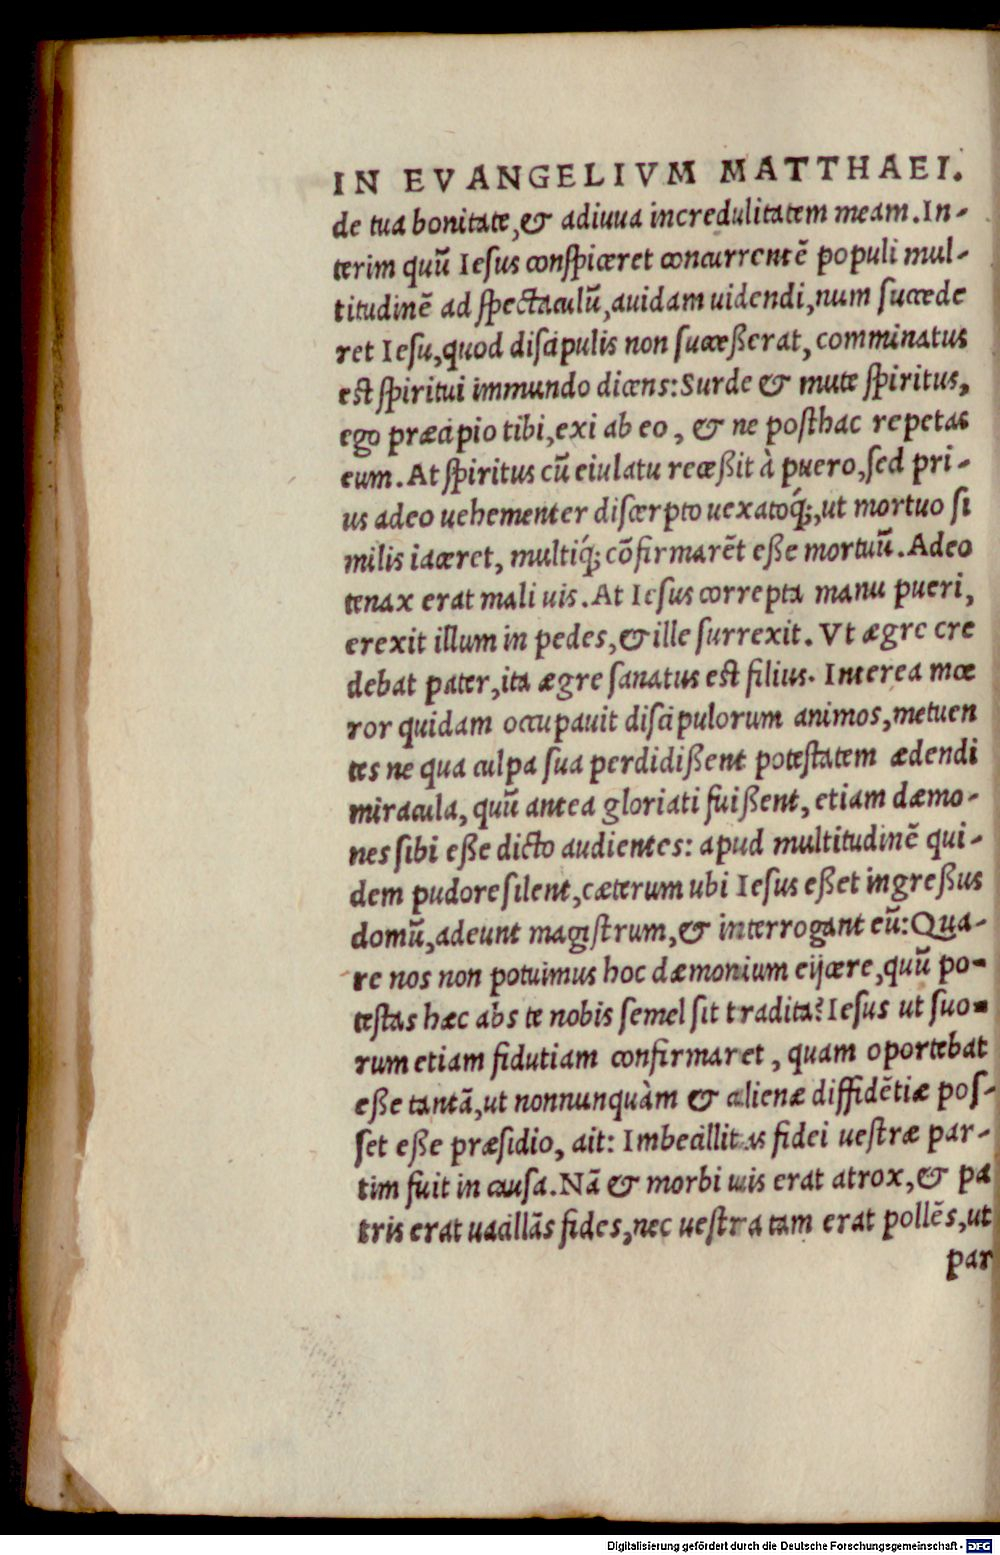 IN EVANGELIVM MATTHAEI.
de tua bonitate,& adiuua incredulitatem meam.In-
terim quũ Iesus conspiceret concurrentẽ populi mul-
titudinẽ ad spectaculũ,auidam uidendi,num succede
ret Iesu,quod discipulis non successerat, comminatus
est spiritui immundo dicens:Surde & mute spiritus,
ego præcipio tibi,exi ab eo , & ne posthac repetas
eum.At spiritus cũ eiulatu recessit à puero,sed pri-
us adeo uehementer discerpto uexatoq́;,ut mortuo si
milis iaceret, multiq́; cõfirmarẽt esse mortuũ.Adeo
tenax erat mali uis.At Iesus correpta manu pueri,
erexit illum in pedes,& ille surrexit. Vt ægre cre
debat pater,ita ægre sanatus est filius. Interea mœ
ror quidam occupauit discipulorum animos,metuen
tes ne qua culpa sua perdidissent potestatem ædendi
miracula, quũ antea gloriati fuissent, etiam dæmo-
nes sibi esse dicto audientes: apud multitudinẽ qui-
dem pudore silent,cæterum ubi Iesus esset ingressus
domũ,adeunt magistrum,& interrogant eũ:Qua-
re nos non potuimus hoc dæmonium eijcere,quũ po-
testas hæc abs te nobis semel sit tradita? Iesus ut suo-
rum etiam fidutiam confirmaret , quam oportebat
esse tantã,ut nonnunquàm & alienæ diffidẽtiæ pos-
set esse præsidio, ait: Imbecillitas fidei uestræ par-
tim fuit in causa.Nã & morbi uis erat atrox,& pa
tris erat uacillãs fides,nec uestra tam erat pollẽs,ut
par
Digitalisierung gefördert durch die Deutsche Forschungsgemeinschaft - DFG